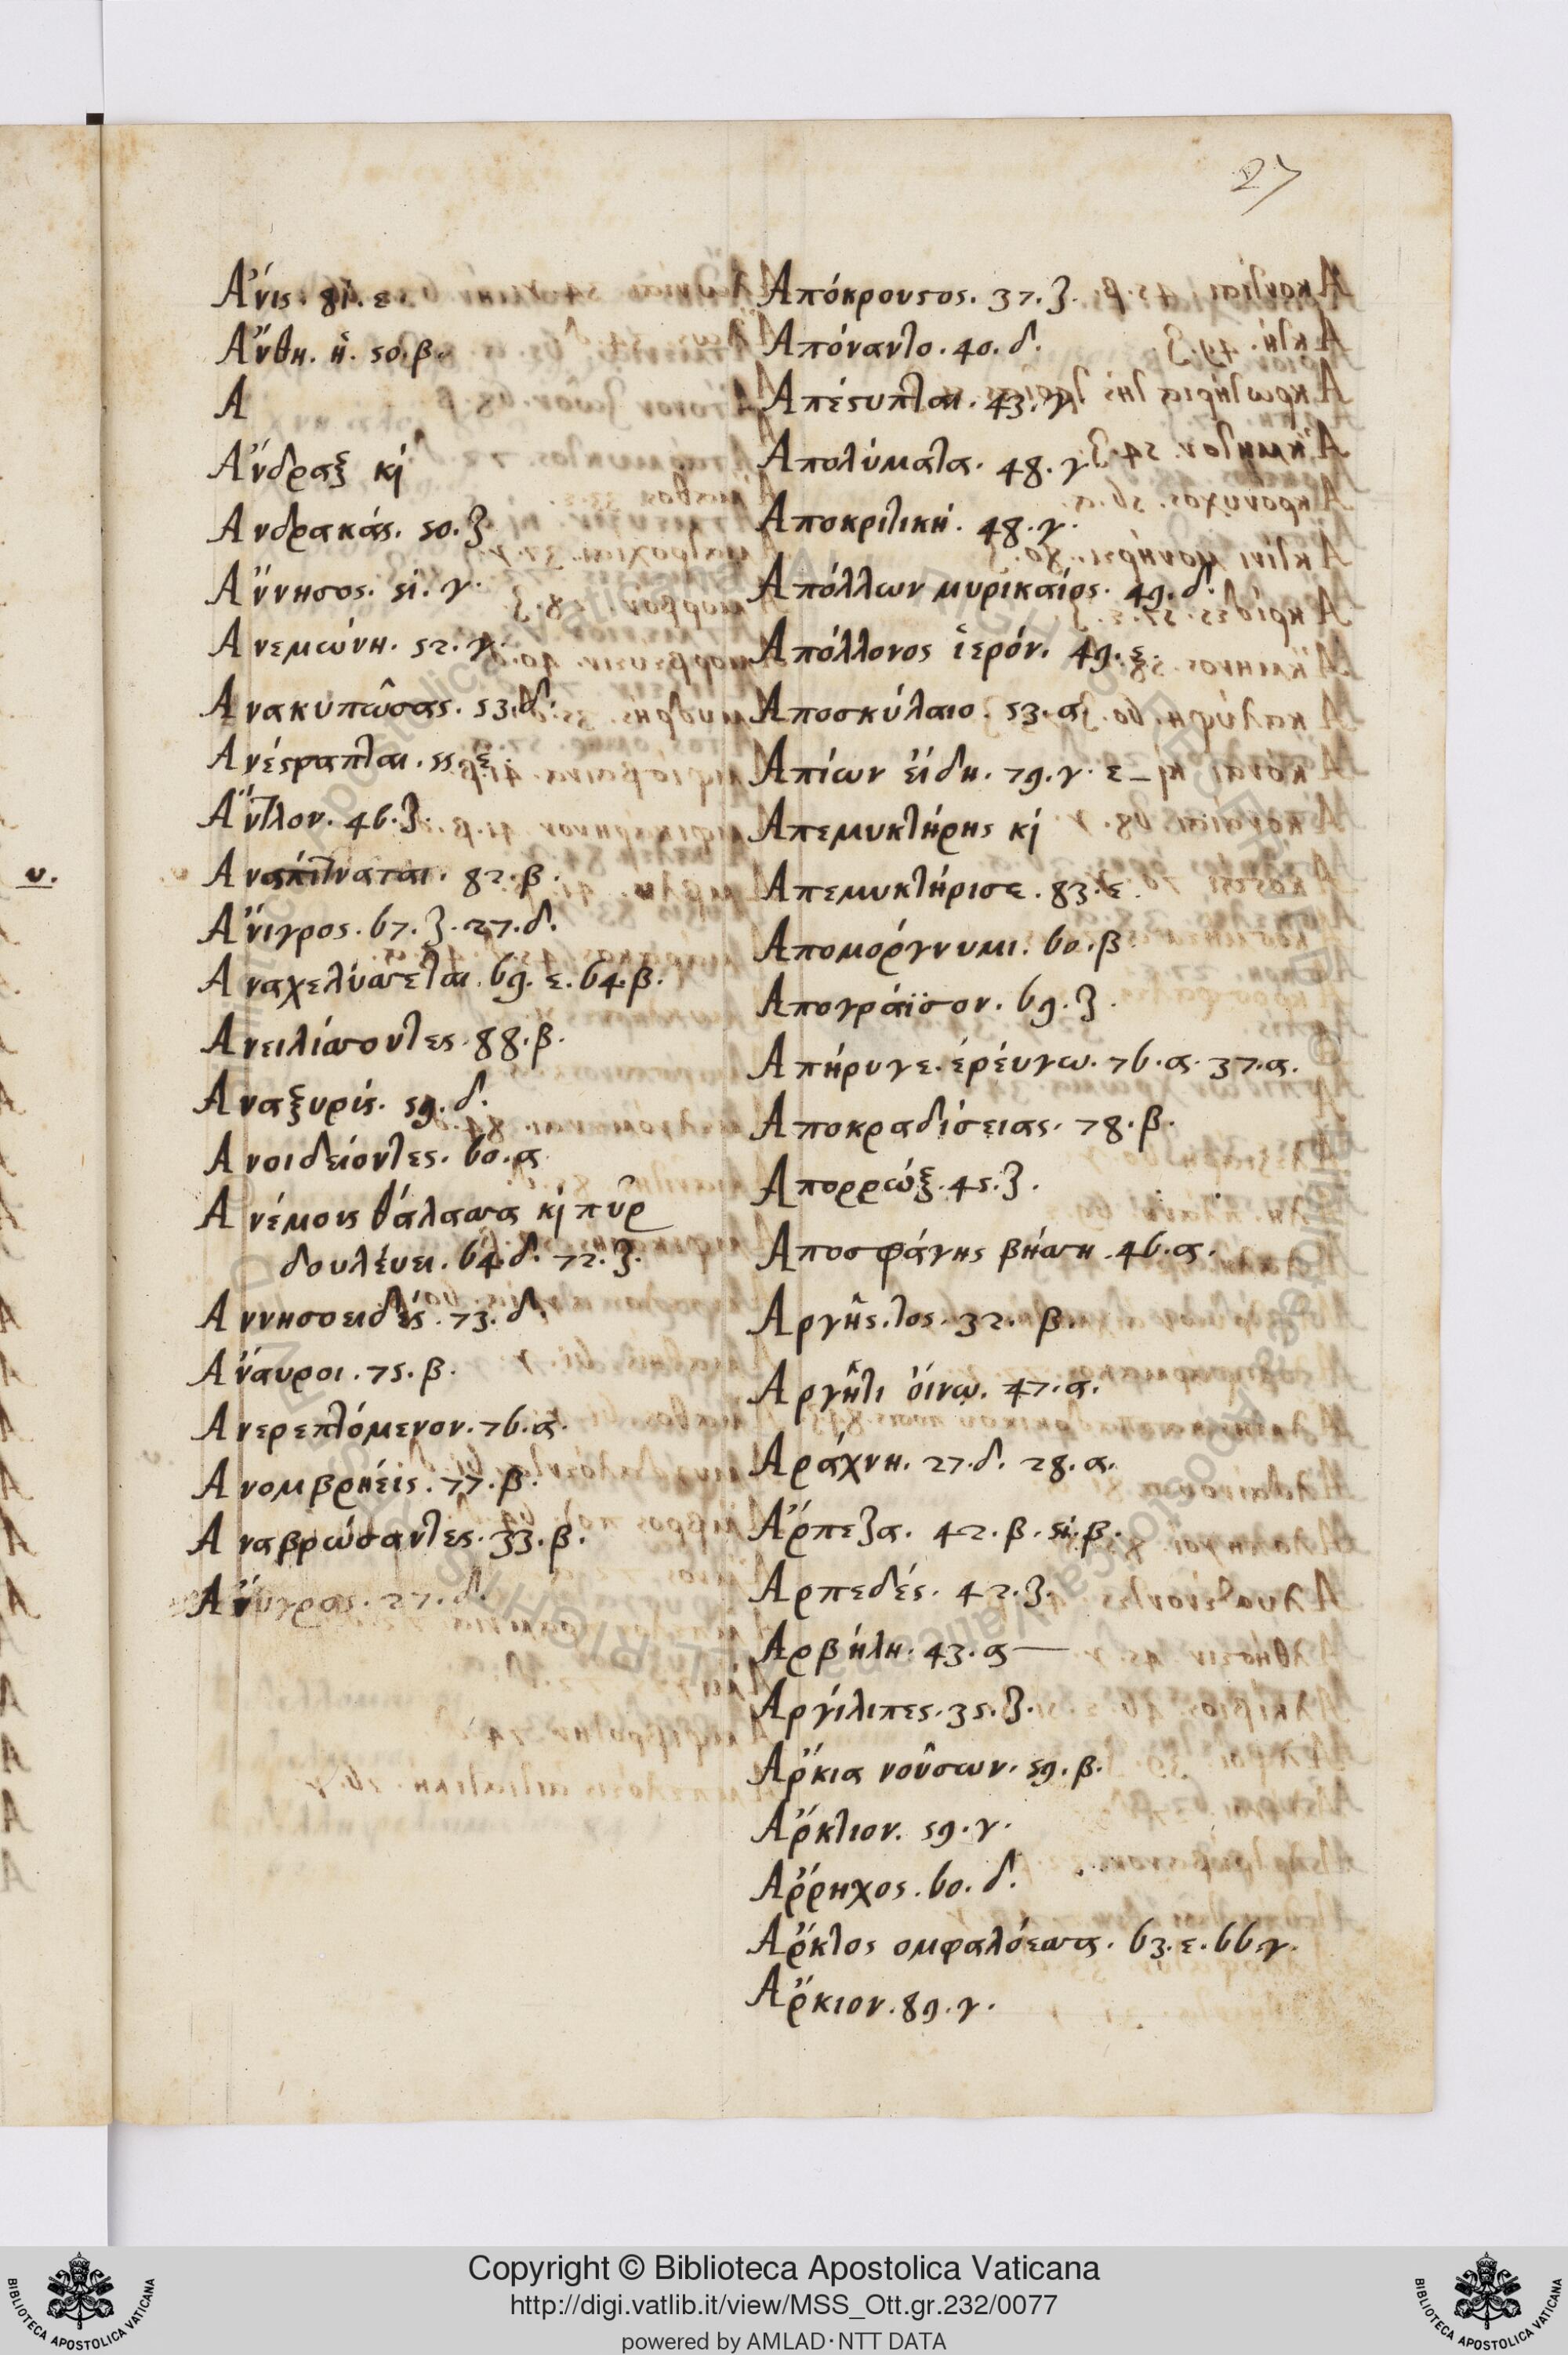 27
Α’́νις. 81. ε
Α’́νθη. ἡ. 50. β.
Α
Α’́νδραξ κὶ
Ανδρακάς. 50. ζ
Α’́ννησος. 51. γ.
Ανεμώνη. 52. γ.
Ανακυπῶσας. 53. δ.
Ανέστραπται. 55. ε
Α’́ντλον. 46. ζ.
82. β.
Α’́νιγρος. 67. ζ. 27. δ.
Αναχελύσσεται. 69. ε. 64. β.
Ανειλίσσοντες. 88. β.
Αναξυρίς. 59. δ.
Ανοιδείοντες. 60. α
Ανέμοις θάλασσα κὶ πῦρ
δουλέυει. 64. δ. 72. ζ.
Αννησοειδές. 73. δ.
Α’́ναυροι. 75. β.
Ανερεπτόμενον. 76. α.
Ανομβρήεις. 77. β.
Αναβρώσαντες. 33. β.
27. δ.
Απόκρουστος. 37. ζ.
Απόναντο. 40. δ.
Απέστυπται. 43. γ
Απολύματα. 48. γ
Αποκριτική. 48. γ.
Απόλλων μυρικαίος. 49. δ.
Απόλλονος ἱερόν. 49. ε.
Αποσκύλαιο. 53. α
Απίων ἔιδη. 79. γ. ε – κὶ
Απεμυκτήρης κὶ
Απεμυκτήρισε. 83. ε.
Απομόργνυμι. 60. β
Απογράϊσον. 69. ζ.
Απήρυγε. ἐρέυγω. 76. α. 37. α.
Αποκραδίσειας. 78. β.
Απορρώξ. 45. ζ.
Αποσφάγης βήσση. 46. α.
Αργῆς. τος. 32. β.
Αργῆτι ὄινω. 47. α.
Αράχνη. 27. δ. 28. α.
Α’́ρπεζα. 42. β. 51. β.
Αρπεδές. 42. ζ.
Αρβήλη. 43. α —
Αργίλιπες. 35. ζ.
Α’́ρκια νοῦσων. 59. β.
Α’́ρκτιον. 59. γ.
Α’́ρρηχος. 60. δ.
Α’́ρκτος ομφαλόεσσα. 63. ε. 66. γ.
Α’́ρκιον. 89. γ.
υ.
Copyright © Biblioteca Apostolica Vaticana
http://digi.vatlib.it/view/MSS_Ott.gr.232/0077
powered by AMLAD·NTT DATA
BIBLIOTECA APOSTOLICA VATICANA
BIBLIOTECA APOSTOLICA VATICANA